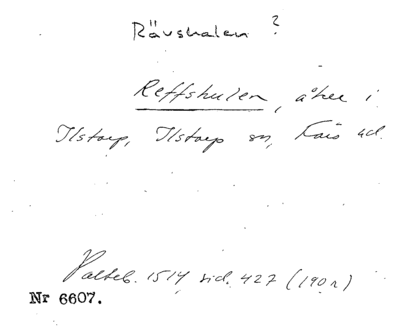 Rävshalen ?
Reffshulen, åker i
Ilstorp, Ilstorp sn, Färs hd.
1514 sid. 427 (190 r)
Nr 6607.